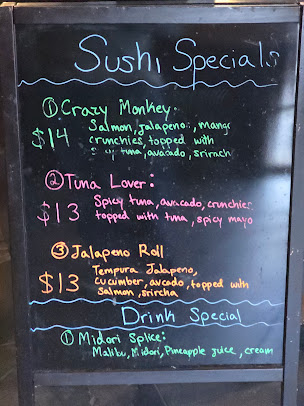 Sushi Specials
① Crazy Monkey:
$14 Salmon, jalapeno, mango
crunchies, topped with
tuna, avacado, srirach
② Tuna Lover:
$13 Spicy tuna, avacado, crunchies
topped with tuna, spicy mayo
③ Jalapeno Roll
$13 Tempura Jalapeno,
cucumber, avcado, topped with
Salmon, srircha
Drink Special
① Midori Splice:
Malibu, Midori, Pineapple juice, cream